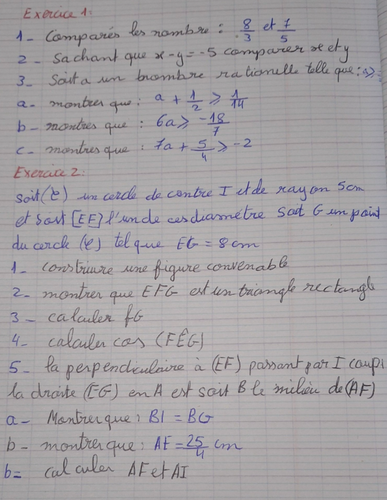 Exercice 1:
1- Comparés les nombre: 8/3 et 7/5
2- Sachant que x-y=-5 comparer x et y
3- Soit a un nombre rationelle telle que: a≥
a- montrer que: a + 1/2 ≥ 1/14
b- montres que: 6a ≥ -18/7
c- montres que: 7a + 5/4 ≥ -2
Exercice 2:
soit (C) un cercle de centre I et de rayon 5cm
et soit [EF] l'un de ces diamétre Soit G un point
du cercle (C) tel que EG = 8cm
1- construire une figure convenable
2- montrer que EFG est un triangle rectangl
3- calculer FG
4- calculer cos (FÊG)
5- la perpendiculaire à (EF) passant par I coupe
la droite (EG) en A est soit B le milieu de (AF)
a- Montrer que: BI = BG
b- montrer que: AE = 25/4 cm
b= calculer AF et AI